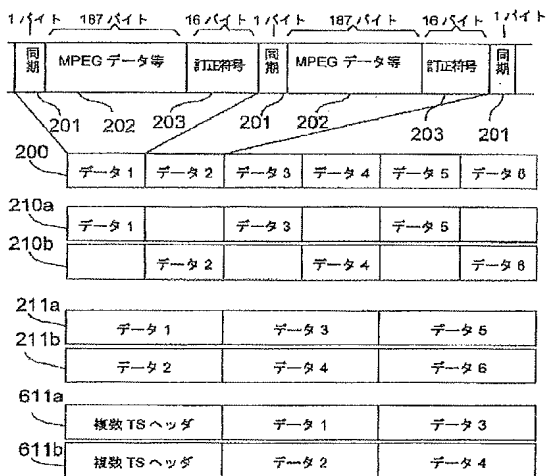 1 バイト 187 バイト 16 バイト 1 バイト 187 バイト 16 バイト 1 バイト
同期 MPEG データ等 訂正符号 同期 MPEG データ等 訂正符号 同期
201 202 203 201 202 203 201
200 データ 1 データ 2 データ 3 データ 4 データ 5 データ 6
210a データ 1 データ 3 データ 5
210b データ 2 データ 4 データ 6
211a データ 1 データ 3 データ 5
211b データ 2 データ 4 データ 6
611a 複数 TS ヘッダ データ 1 データ 3
611b 複数 TS ヘッダ データ 2 データ 4